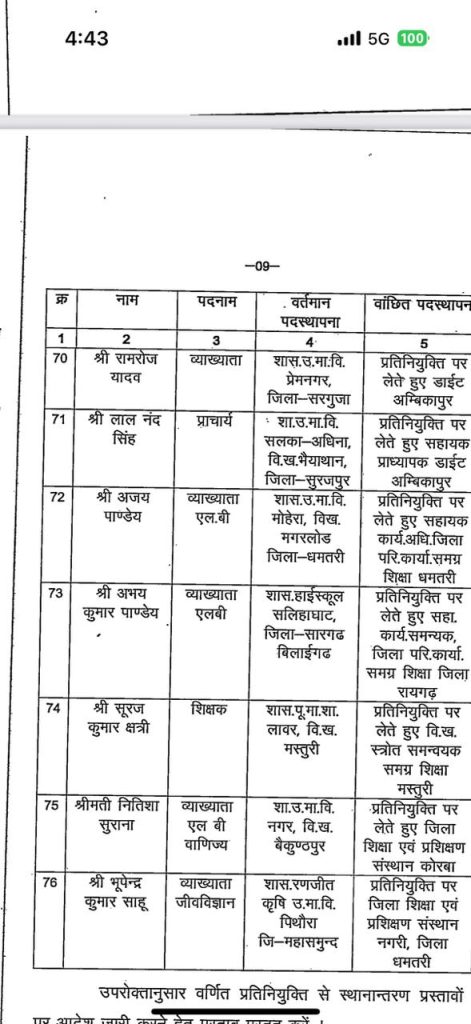 4:43 5G 100
—09—
क्र नाम पदनाम वर्तमान पदस्थापना वांछित पदस्थापन
1 2 3 4 5
70 श्री रामरोज यादव व्याख्याता शास.उ.मा.वि. प्रेमनगर, जिला—सरगुजा प्रतिनियुक्ति पर लेते हुए डाईट अम्बिकापुर
71 श्री लाल नंद सिंह प्राचार्य शा.उ.मा.वि. सलका—अधिना, वि.ख.भैयाथान, जिला—सुरजपुर प्रतिनियुक्ति पर लेते हुए सहायक प्राध्यापक डाईट अम्बिकापुर
72 श्री अजय पाण्डेय व्याख्याता एल.बी शास.उ.मा.वि. मोहेरा, विख. मगरलोड जिला—धमतरी प्रतिनियुक्ति पर लेते हुए सहायक कार्य.अधि.जिला परि.कार्या.समग्र शिक्षा धमतरी
73 श्री अभय कुमार पाण्डेय व्याख्याता एलबी शास.हाईस्कूल सलिहाघाट, जिला—सारगढ बिलाईगढ प्रतिनियुक्ति पर लेते हुए सहा. कार्य.समन्यक, जिला परि.कार्या. समग्र शिक्षा जिला रायगढ़
74 श्री सूरज कुमार क्षत्री शिक्षक शास.पू.मा.शा. लावर, वि.ख. मस्तुरी प्रतिनियुक्ति पर लेते हुए वि.ख. स्त्रोत समन्वयक समग्र शिक्षा मस्तुरी
75 श्रीमती नितिशा सुराना व्याख्याता एल बी वाणिज्य शा.उ.मा.वि. नगर, वि.ख. बैकुण्ठपुर प्रतिनियुक्ति पर लेते हुए जिला शिक्षा एवं प्रशिक्षण संस्थान कोरबा
76 श्री भूपेन्द्र कुमार साहू व्याख्याता जीवविज्ञान शास.रणजीत कृषि उ.मा.वि. पिथौरा जि—महासमुन्द प्रतिनियुक्ति पर जिला शिक्षा एवं प्रशिक्षण संस्थान नगरी, जिला धमतरी
उपरोक्तानुसार वर्णित प्रतिनियुक्ति से स्थानान्तरण प्रस्तावों